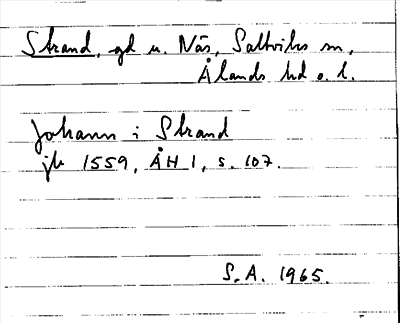 Strand, gd u. Näs, Saltviks sn,
Ålands hd o. l.
Johann i Strand
jb 1559, ÅH 1, s. 107.
S.A. 1965.